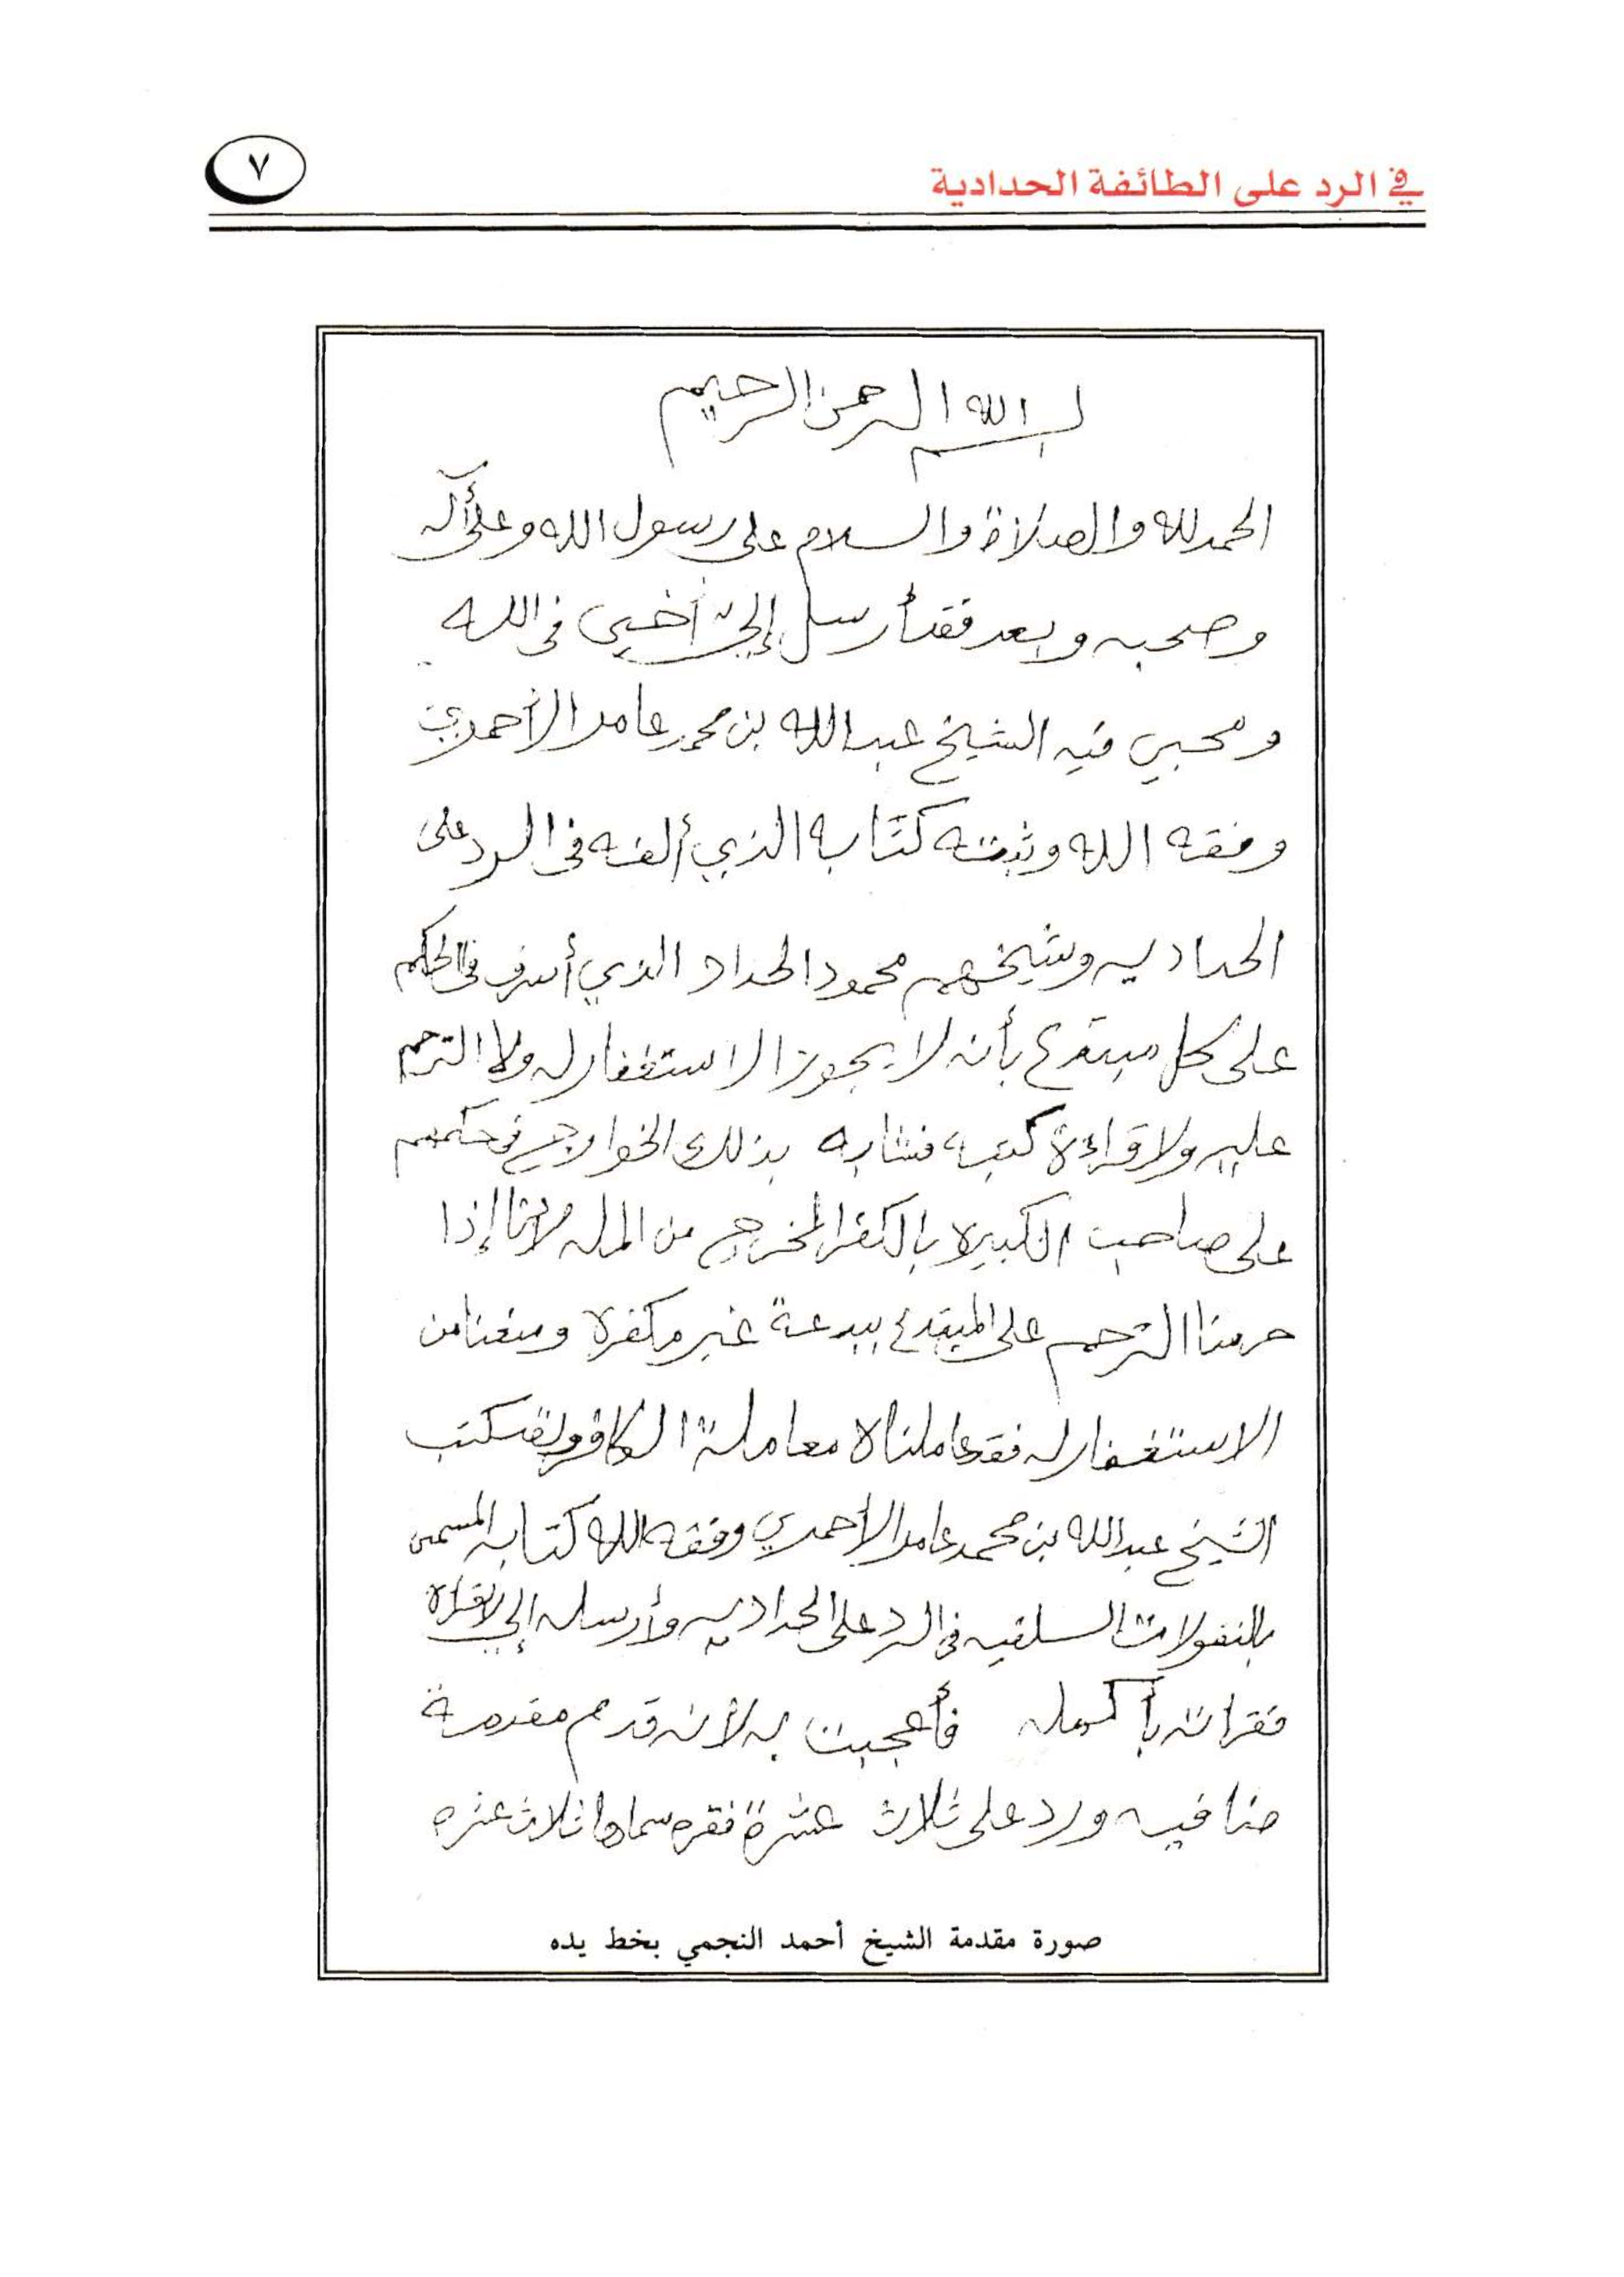 في الرد على الطائفة الحدادية
٧
بسم الله الرحمن الرحيم
الحمد لله والصلاة والسلام على رسول الله وعلى آله
وصحبه وبعد فقد أرسل إليّ أخي في الله
ومحبي فيه الشيخ عبد الله بن محمد عامر الأحمري
وفقه الله وثبته كتابه الذي ألفه في الرد على
الحداديه وشيخهم محمود الحداد الذي أسرف في الحكم
على كل مبتدع بأنه لا يجوز الاستغفار له ولا الترحم
عليه ولا قراءة كتبه فشابه بذلك الخوارج في حكمهم
على صاحب الكبيره بالكفر المخرج من المله لأننا إذا
حرمنا الترحم على المبتدع ببدعة غير مكفره ومنعنا من
الاستغفار له فقد عاملناه معاملة الكافر ولقد كتب
الشيخ عبد الله بن محمد عامر الأحمري وفقه الله كتابه المسمى
بالنقولات السلفيه في الرد على الحداديه وأرسله إلي لأقرأه
فقرأته بأكمله فأعجبت به لأنه قدم مقدمة
ضافيه ورد على ثلاث عشرة فقره سماها ثلاث عشره
صورة مقدمة الشيخ أحمد النجمي بخط يده